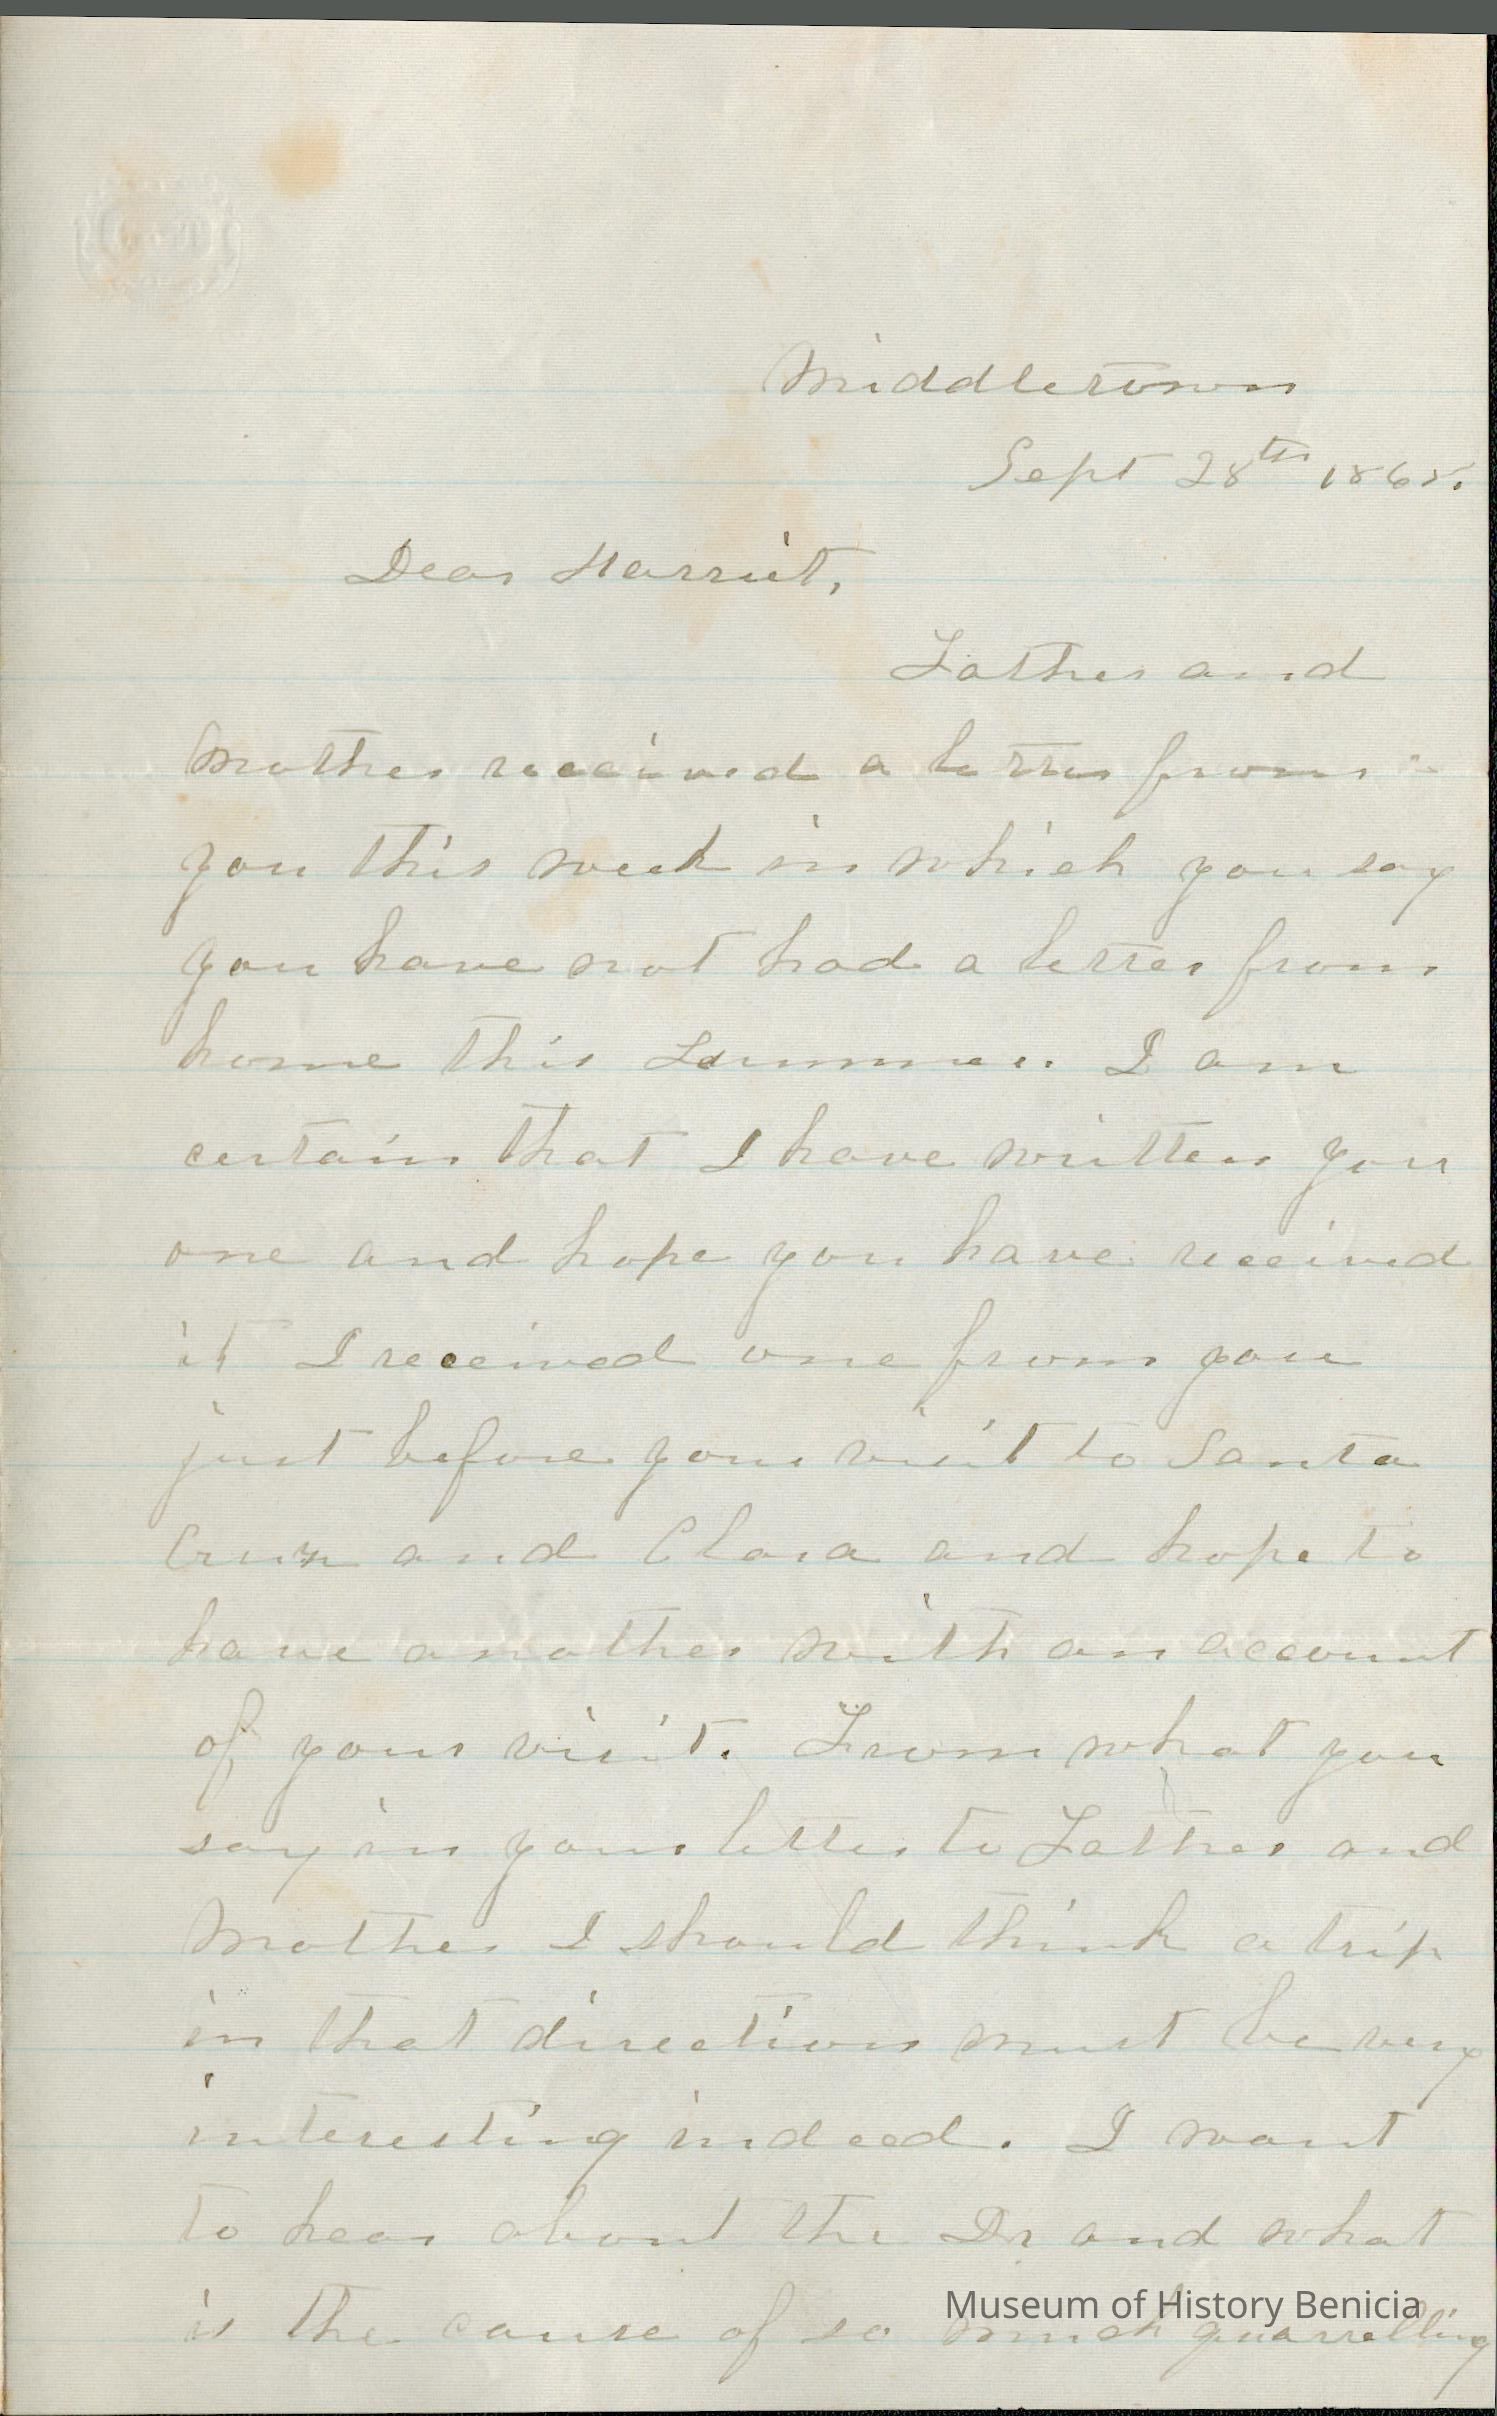 Middletown
Sept 28th 1865.
Dear Harriet,
Father and
Mother received a letter from
you this week in which you say
you have not had a letter from
home this Summer. I am
certain that I have written you
one and hope you have received
it I received one from you
just before your visit to Santa
Cruz and Clara and hope to
have another with an account
of your visit. From what you
say in your letter to Father and
Mother I should think a trip
in that direction must be very
interesting indeed. I want
to hear about the Dr and what
is the cause of so much quarrelling
Museum of History Benicia